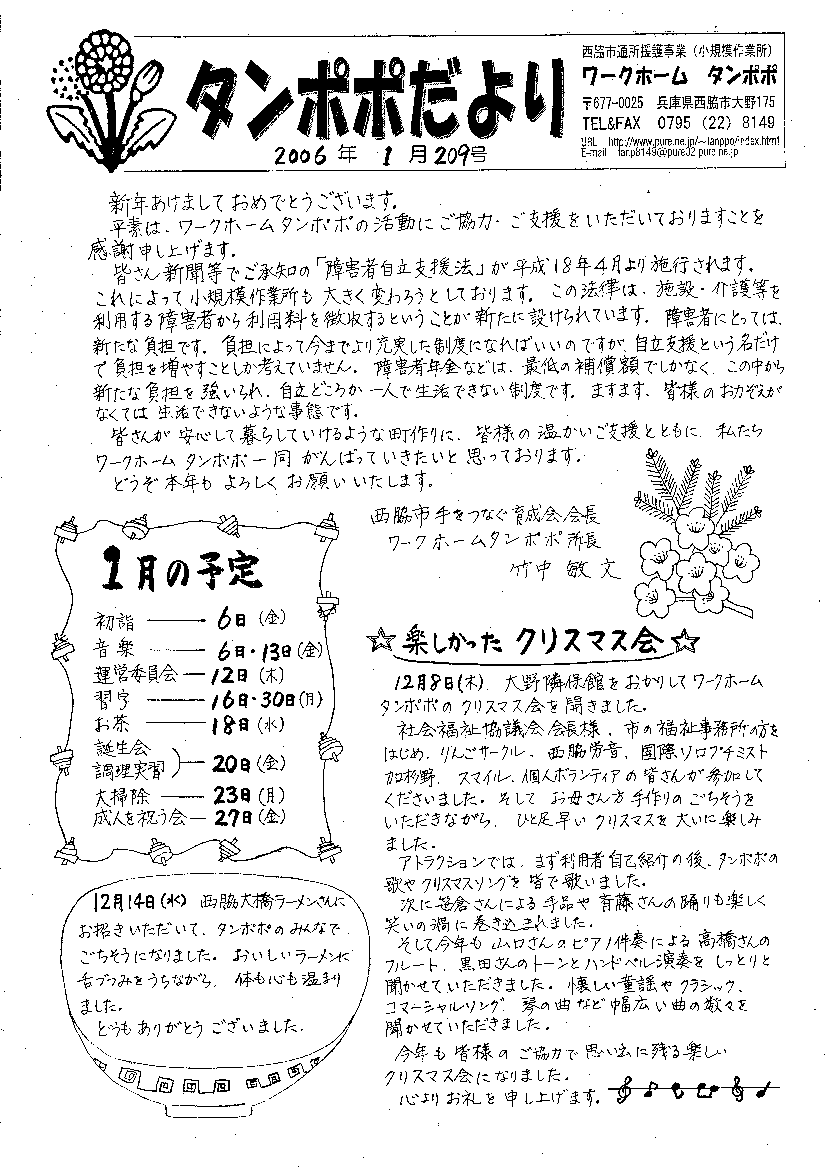 タンポポだより
2006年 1月209号
西脇市通所援護事業（小規模作業所）
ワークホーム タンポポ
〒677-0025 兵庫県西脇市大野175
TEL&FAX 0795（22）8149
URL http://www.pure.ne.jp/~tanppo/index.html
新年あけましておめでとうございます。
平素は、ワークホームタンポポの活動にご協力・ご支援をいただいておりますことを
感謝申し上げます。
皆さん新聞等でご承知の「障害者自立支援法」が平成18年4月より施行されます。
これによって小規模作業所も大きく変わろうとしております。この法律は、施設・介護等を
利用する障害者から利用料を徴収するということが新たに設けられています。障害者にとっては、
新たな負担です。負担によって今までより充実した制度になればいいのですが、自立支援という名だけ
で負担を増やすことしか考えていません。障害者年金などは、最低の補償額でしかなく、この中から
新たな負担を強いられ、自立どころか一人で生活できない制度です。ますます、皆様のおかぞえが
なくては生活できないような事態です。
皆さんが安心して暮らしていけるような町作りに、皆様の温かいご支援とともに、私たち
ワークホームタンポポ一同がんばっていきたいと思っております。
どうぞ本年もよろしくお願いいたします。
西脇市手をつなぐ育成会会長
ワークホームタンポポ所長
竹中敏文
1月の予定
初詣 ── 6日（金）
音楽 ── 6日・13日（金）
運営委員会 ── 12日（木）
習字 ── 16日・30日（月）
お茶 ── 18日（水）
誕生会
調理実習 ── 20日（金）
大掃除 ── 23日（月）
成人を祝う会 ── 27日（金）
12月14日（水）西脇大橋ラーメンさんに
お招きいただいて、タンポポのみんなで、
ごちそうになりました。おいしいラーメンに
舌づつみをうちながら、体も心も温まり
ました。
どうもありがとうございました。
☆楽しかった クリスマス会☆
12月8日（木）、大野隣保館をおかりしてワークホーム
タンポポのクリスマス会を開きました。
社会福祉協議会会長様、市の福祉事務所の方を
はじめ、りんごサークル、西脇労音、国際ソロプチミスト
加杉野、スマイル、個人ボランティアの皆さんが参加して
くださいました。そしてお母さん方手作りのごちそうを
いただきながら、ひと足早いクリスマスを大いに楽しみ
ました。
アトラクションでは、まず利用者自己紹介の後、タンポポの
歌やクリスマスソングを皆で歌いました。
次に笹倉さんによる手品や斉藤さんの踊りも楽しく
笑いの渦に巻き込まれました。
そして今年も山口さんのピアノ伴奏による高橋さんの
フルート、黒田さんのトーンとハンドベル演奏をしっとりと
聞かせていただきました。懐しい童謡やクラシック、
コマーシャルソング 琴の曲など幅広い曲の数々を
聞かせていただきました。
今年も皆様のご協力で思い出に残る楽しい
クリスマス会になりました。
心よりお礼を申し上げます。